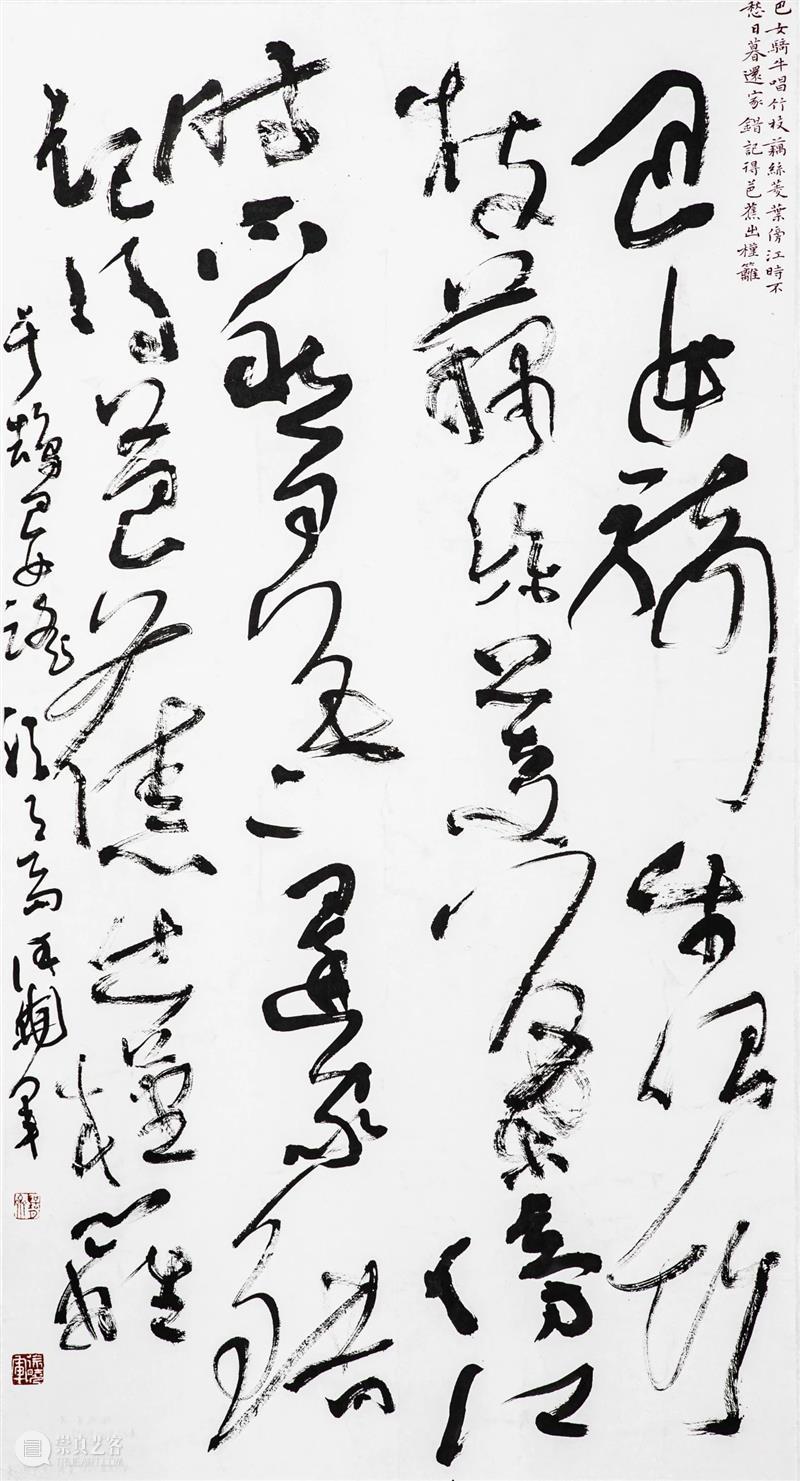 巴女騎牛唱竹枝藕絲菱葉傍江時不
愁日暮還家錯記得芭蕉出槿籬
巴女騎牛唱竹
枝藕絲菱葉傍江
時不愁日暮還家錯
記得芭蕉出槿籬
于鵠巴女謠
崇真艺客